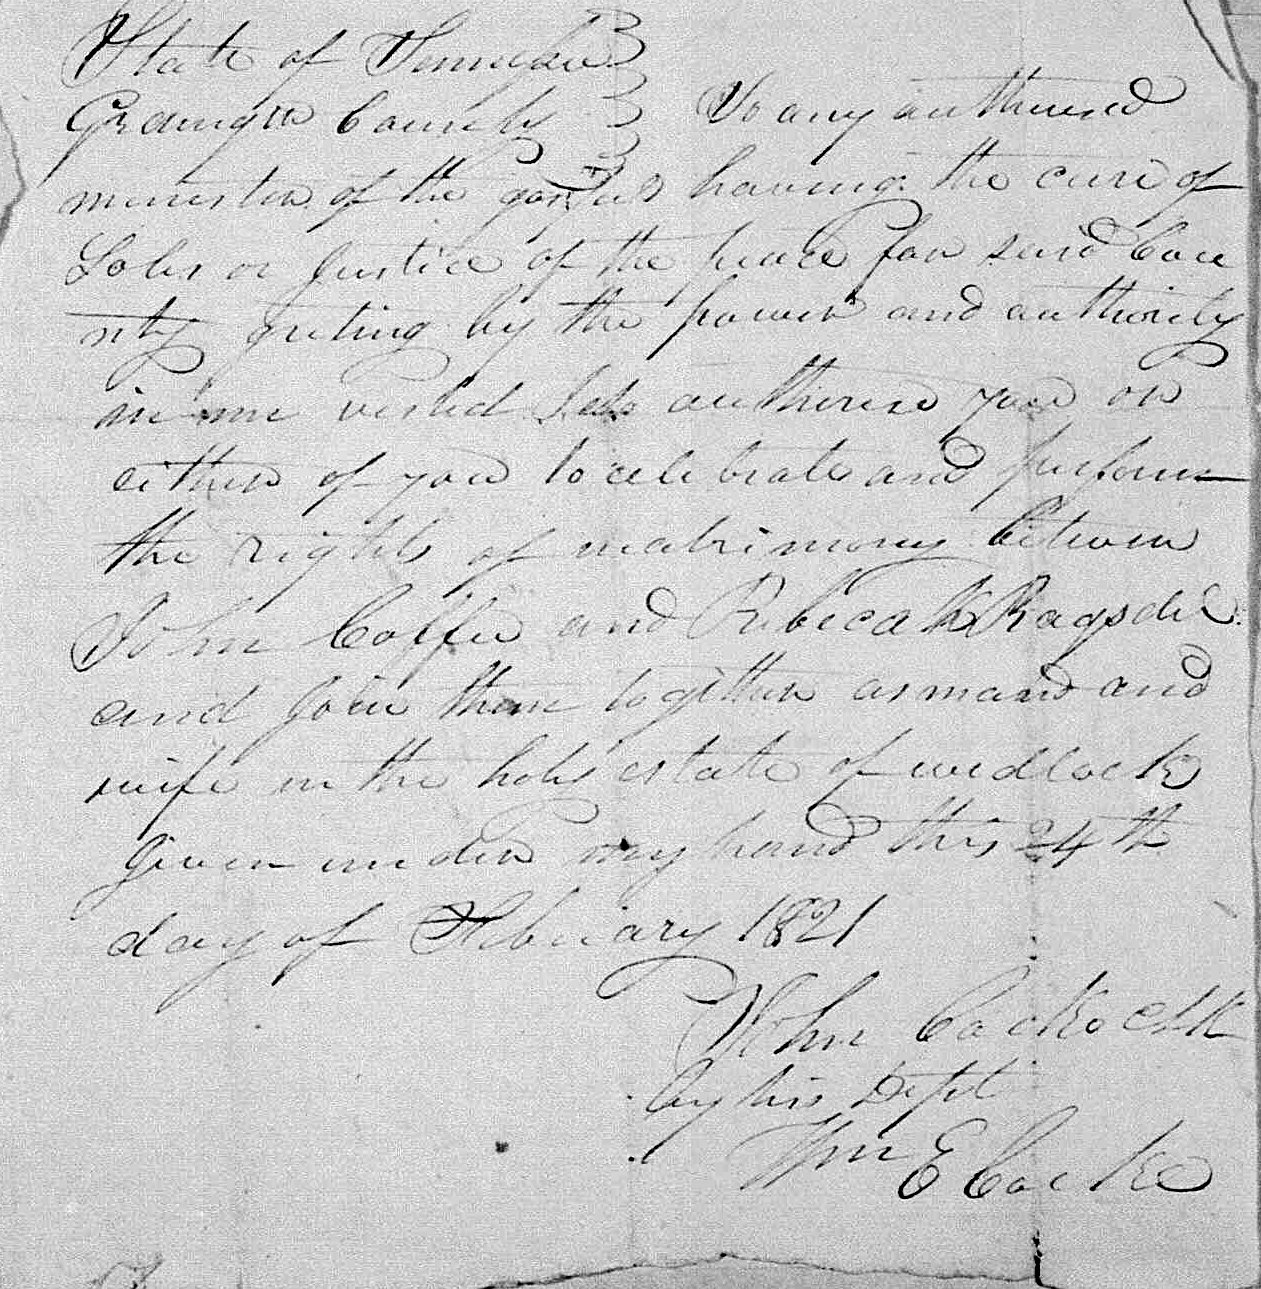 State of Tennessee
Grainger County To any authorised
minister of the gospel having the cure of
Soles or Justice of the peace for said Cou
nty greting by the power and authority
in me vested I do authorise you or
either of you to celebrate and perform
the rights of matrimony between
John Coffee and Rebecah Ragsdil
and Join them together as man and
wife in the holy estate of wedlock
Given under my hand this 24th
day of February 1821
John Cocke Clk
by his Dept
Wm E Cocke